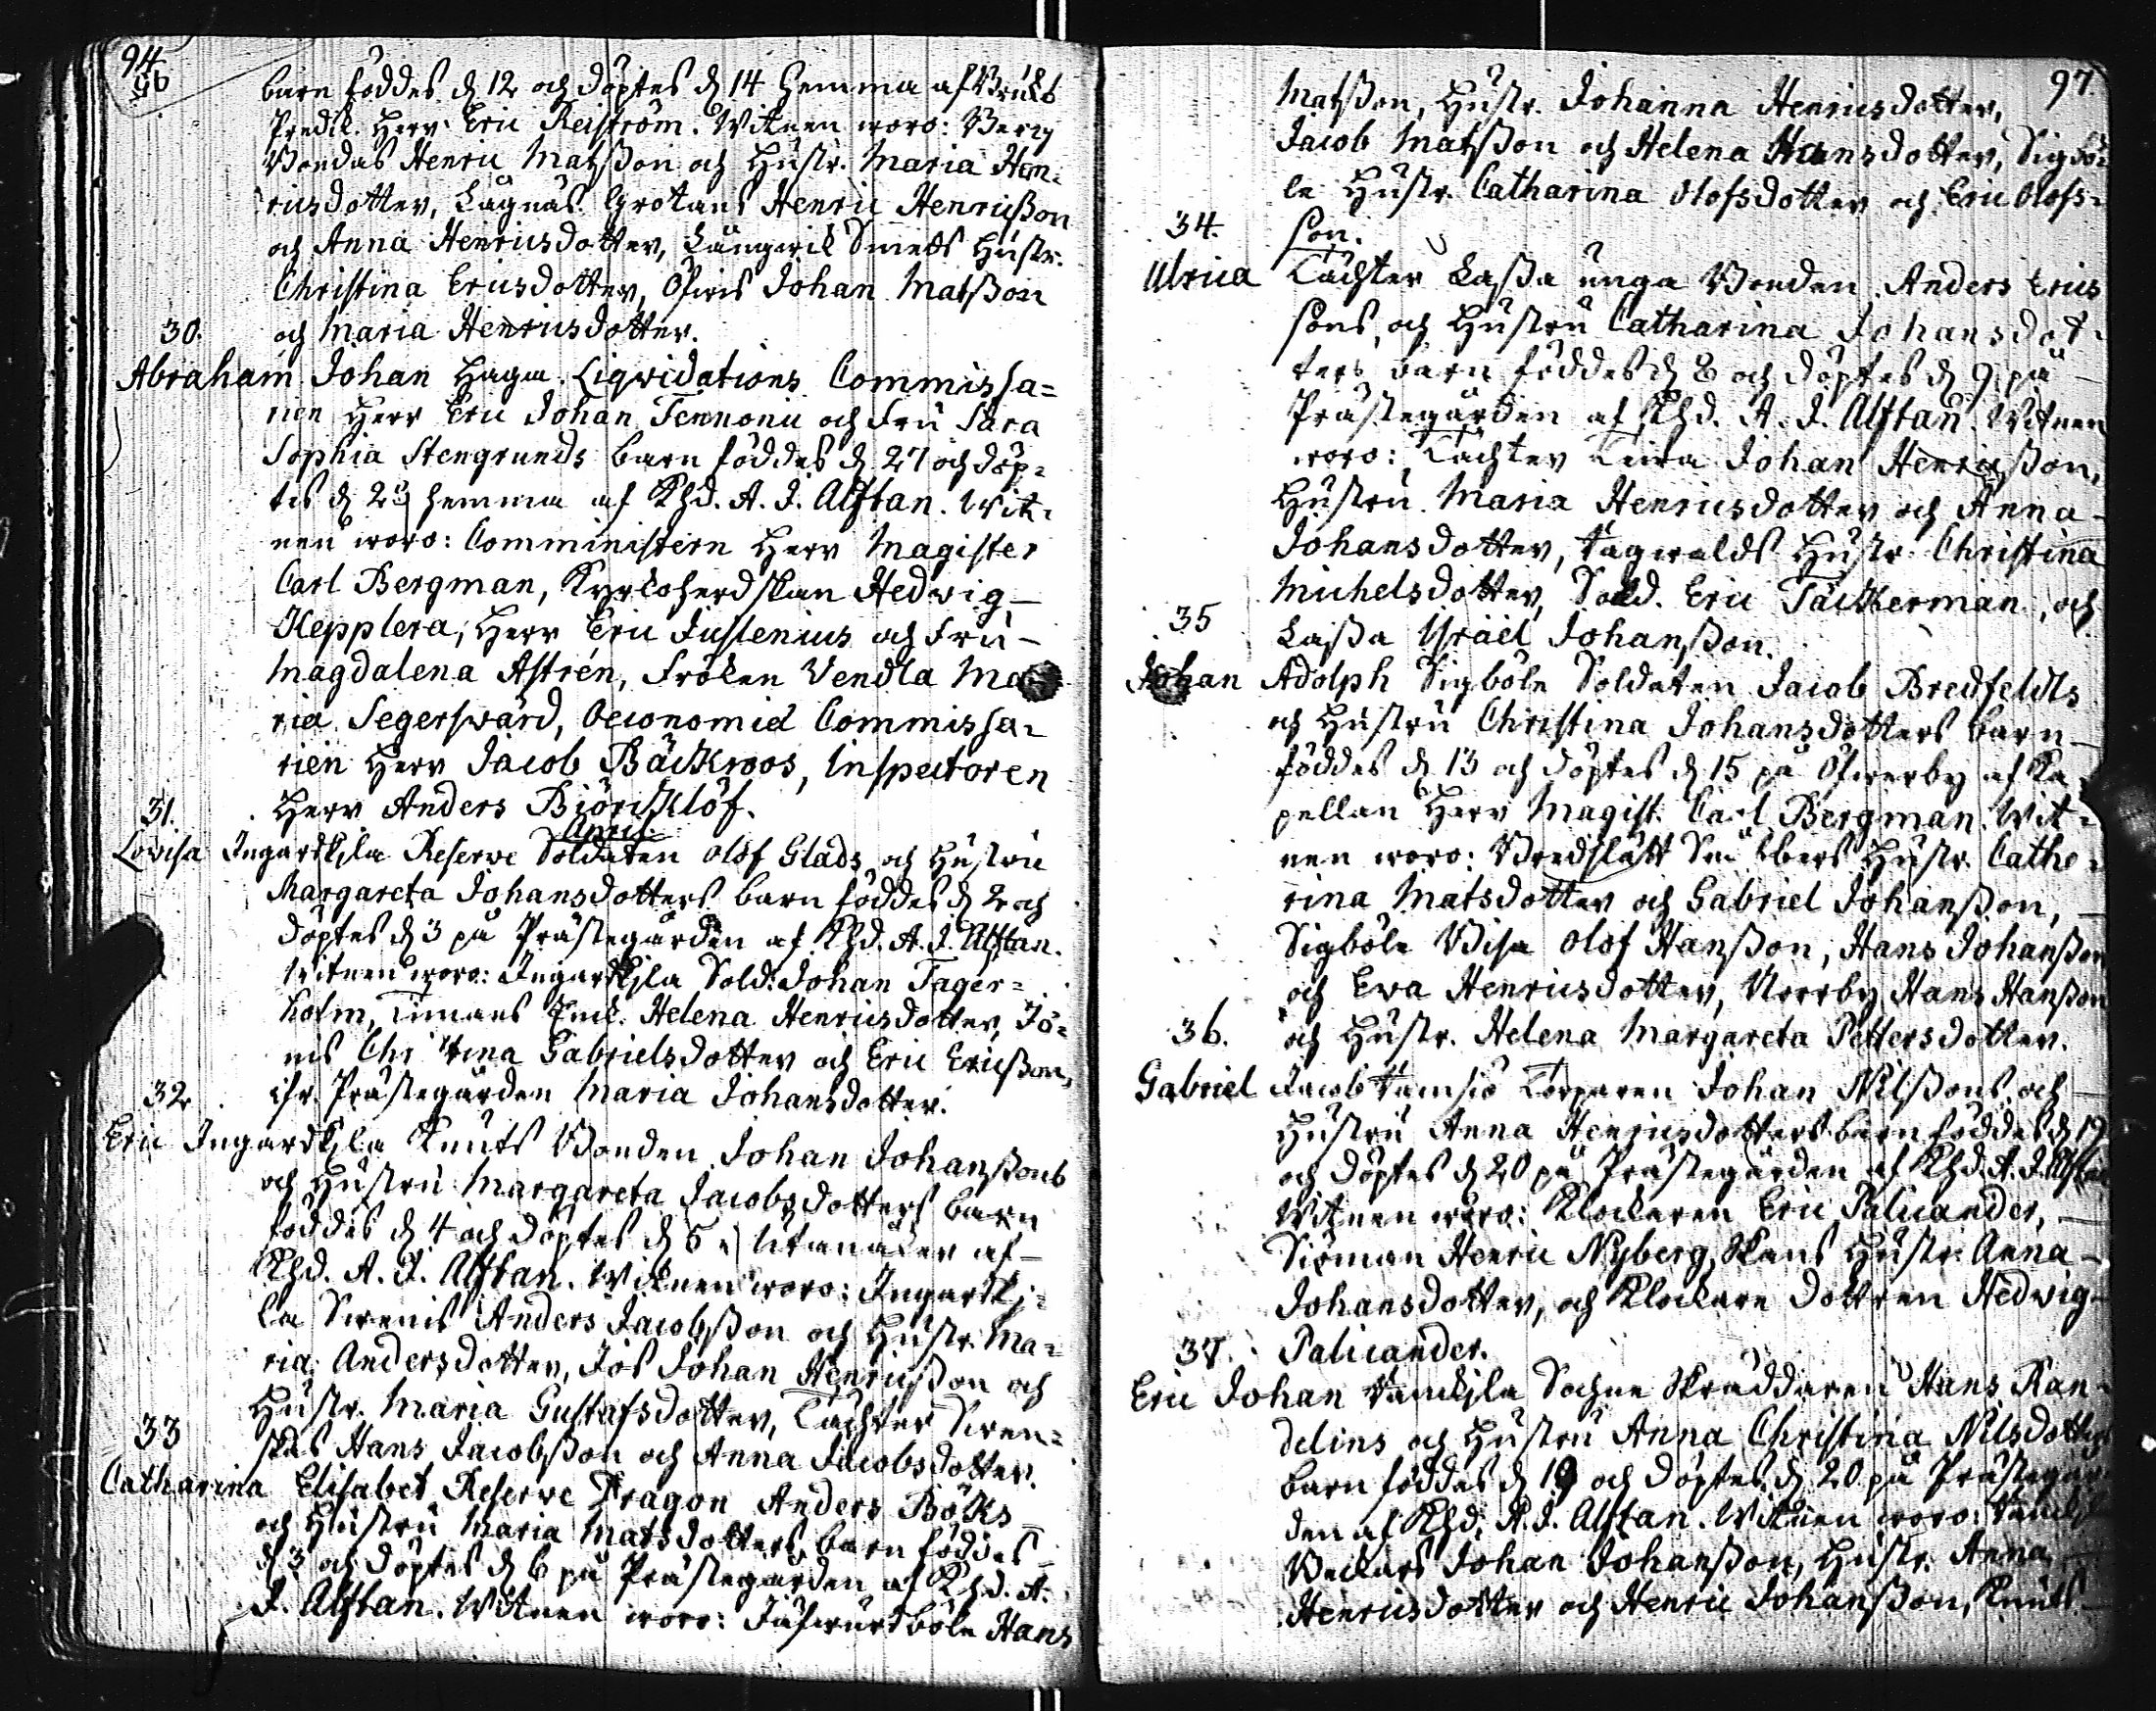 94
96
barn föddes d 12 och döptes d 14 hemma af Bruks
Predik. Herr Eric Reiström. Witnen woro: Berg
Bondas Henric Matsson och Hustr. Maria Hen=
ricsdotter, Lagnäs Grotans Henric Henricsson
och Anna Henricsdotter, Långwik Smeds Hustr.
Christina Ericsdotter, Öfwis Johan Matsson
30. och Maria Henricsdotter.
Abraham Johan Hagm. Liqvidations Commissa=
rien Herr Eric Johan Fennonii och Fru Sara
Sophia Stengrunds barn föddes d 27 och döp=
tes d 29 hemma af Khd. A. J. Alftan. Wit=
nen woro: Comministern Herr Magister
Carl Bergman, Kyrkoherdskan Hedwig
Kepplera, Herr Eric Juslenius och Fru
Magdalena Astrén, Fröken Vendla Ma
ria Segerswärd, Oeconomiæ Commissa=
rien Herr Jacob Bäckroos, Inspectoren
31. Herr Anders Biörcklöf.
April.
Lovisa Ingarskila Reserve Soldaten Olof Glads och Hustru
Margareta Johansdotters barn föddes d 2 och
döptes d 3 på Prästegården af Khd. A. J. Alftan.
Witnen woro: Ingarskila Sold: Johan Fager=
holm, Timans Enk. Helena Henricsdotter, Jö=
nis Christina Gabrielsdotter och Eric Ericsson,
32 ifr. Prästegården Maria Johansdotter.
Eric Ingarskila Knuts Bonden Johan Johanssons
och Hustru Margareta Jacobsdotters barn
föddes d 4 och döptes d 5 i Utanåker af
Khd. A. J. Alftan. Witnen woro: Ingarski=
la Swenis Anders Jacobsson och Hustr. Ma=
ria Andersdotter, Jös Johan Henricsson och
Hustr. Maria Gustafsdotter, Tächter Swen=
33 skas Hans Jacobsson och Anna Jacobsdotter.
Catharina Elisabet Reserve Dragon Anders Böks
och Hustru Maria Matsdotters barn föddes
d 3 och döptes d 6 på Prästegården af Khd. A.
J. Alftan. Witnen woro: Jäfwursböle Hans
97.
Matsson, Hustr. Johanna Henricsdotter,
Jacob Matsson och Helena Hansdotter, Sigbö=
le Hustr. Catharina Olofsdotter och Eric Olofs=
34. son.
Ulrica Tächter Lassa unga Bonden Anders Erics
sons, och Hustru Catharina Johansdot=
ters barn föddes d 8 och döptes d 9 på
Prästegården af Khd. A. J. Alftan. Witnen
woro: Tächter Johan Henricsson,
Hustru Maria Henricsdotter och Anna
Johansdotter, Hustr. Christina
Michelsdotter, Sold. Eric Täckerman, och
35 Lassa Israel Johansson.
Johan Adolph Sigböle Soldaten Jacob Bredfeldts
och Hustru Christina Johansdotters barn
föddes d 13 och döptes d 15 på Öfwerby af Ka
pellan Herr Magist. Carl Bergman. Wit=
nen woro: Bredslätt Hustr. Catha=
rina Matsdotter och Gabriel Johansson,
Sigböle Wisa Olof Hansson, Hans Johansson
och Ewa Henricsdotter, Norrby Hans Hansson
36. och Hustr. Helena Margareta Pettersdotter.
Gabriel Jacob Torparen Johan Nilssons och
Hustru Anna Henricsdotters barn föddes d 19
och döptes d 20 på Prästegården af Khd. A. J. Alftan
Witnen woro: Klockaren Eric Palicander,
Siöman Henric Nyberg, Hustr. Anna
Johansdotter, och Klockare Dottren Hedwig
37. Palicander.
Eric Johan Sochne Skräddaren Hans Ran=
delins och Hustru Anna Christina Nilsdotters
barn föddes d 19 och döptes d 20 på Prästegår
den af Khd. A. J. Alftan. Witnen woro:
Johan Johansson, Hustr. Anna
Henricsdotter och Henric Johansson, Knuts